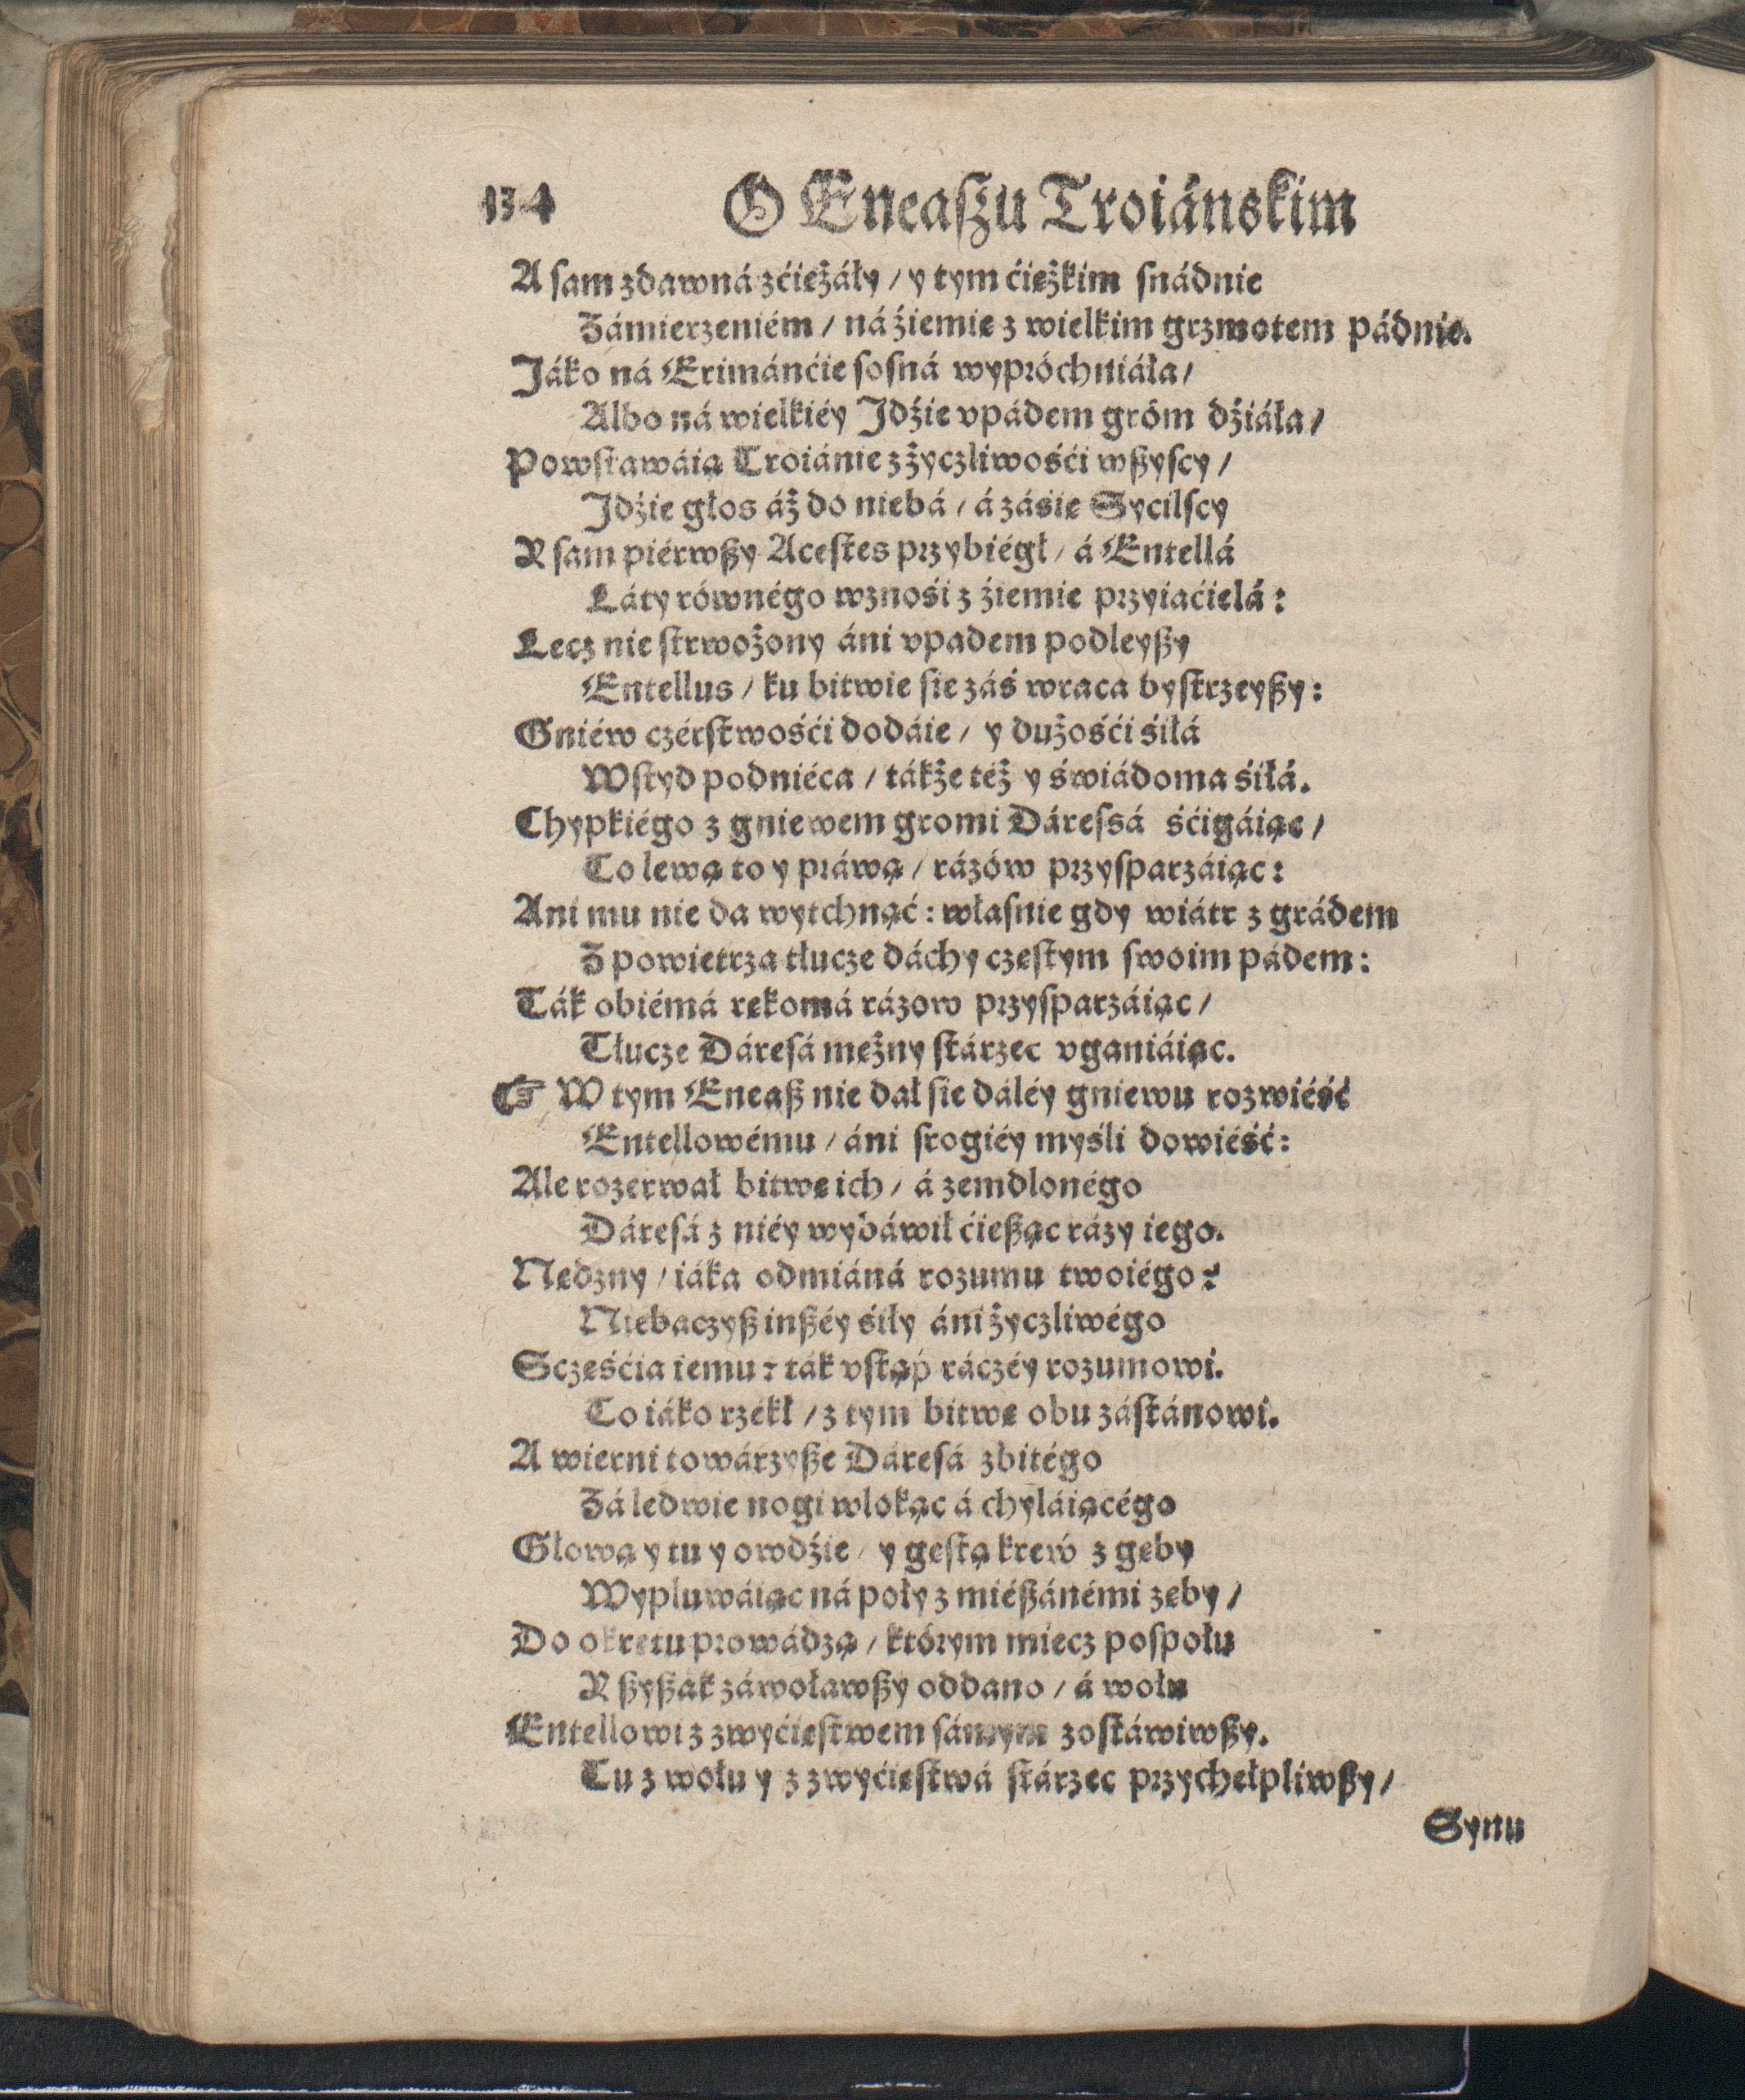 134 O Eneaſzu Troiánskim
A ſam zdawná zćiężáły / y tym ćiężkim ſnádnie
Zámierzeniém / ná źiemię z wielkim grzmotem pádnie.
Jáko ná Erimánćie ſoſná wypróchniáła /
Albo ná wielkiéy Jdźie vpádem gróm dźiáła /
Powſtawáią Troiánie z życzliwośći wßyſcy /
Jdźie głos áż do niebá / á záśię Sycilſcy
Y ſam piérwßy Aceſtes przybiégł / á Entellá
Láty równégo wznośi z źiemie przyiaćielá:
Lecz nie ſtrwożony áni vpadem podleyßy
Entellus / ku bitwie ſie záś wraca byſtrzeyßy:
Gniéw czérſtwośći dodáie / y dużośći śiłá
Wſtyd podniéca / tákże téż y świádoma śiłá.
Chypkiégo z gniewem gromi Dáreſsá śćigáiąc /
To lewą to y práwą / rázów przyſparzáiąc:
Ani mu nie da wytchnąć: własnie gdy wiátr z grádem
Z powietrza tłucze dáchy częſtym ſwoim pádem:
Ták obiémá rękomá rázow przyſparzáiąc /
Tłucze Dáreſá mężny ſtárzec vganiáiąc.
☞ W tym Eneaß nie dał ſie dáléy gniewu rozwiéść
Entellowému / áni ſrogiéy myśli dowiéść:
Ale rozerwał bitwę ich / á zemdlonégo
Dáreſá z niéy wybáwił ćießąc rázy iego.
Nędzny / iáka odmiáná rozumu twoiégo?
Niebaczyß inßéy śiły áni życzliwégo
Sczęśćia iemu? ták vſtąṕ ráczéy rozumowi.
To iáko rzékł / z tym bitwę obu záſtánowi.
A wierni towárzyße Dáreſá zbitégo
Zá ledwie nogi wlokąc á chyláiącégo
Głową y tu y owdźie / y gęſtą kreẃ z gęby
Wypluwáiąc ná poły z miéßánémi zęby /
Do okrętu prowádzą / którym miecz poſpołu
Y ßyßak záwoławßy oddano / á wołu
Entellowi z zwyćięſtwem ſámym zoſtáwiwßy.
Tu z wołu y z zwyćięſtwá ſtárzec przychełpliwßy /
Synu